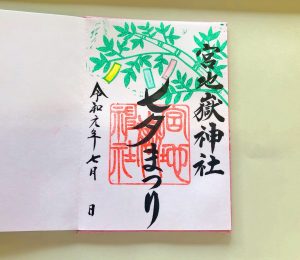 宮地嶽神社
七夕まつり
宮地
嶽神社
令和元年七月 日